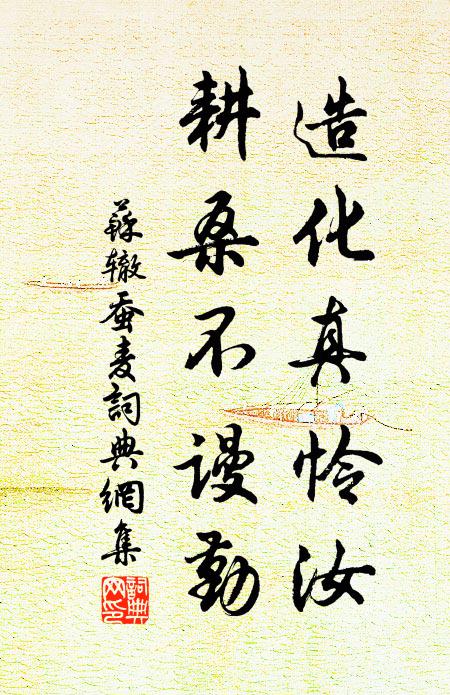 造化真怜汝
耕桑不谩勤
蘇辙蚕麦詞典網集
詞典网印